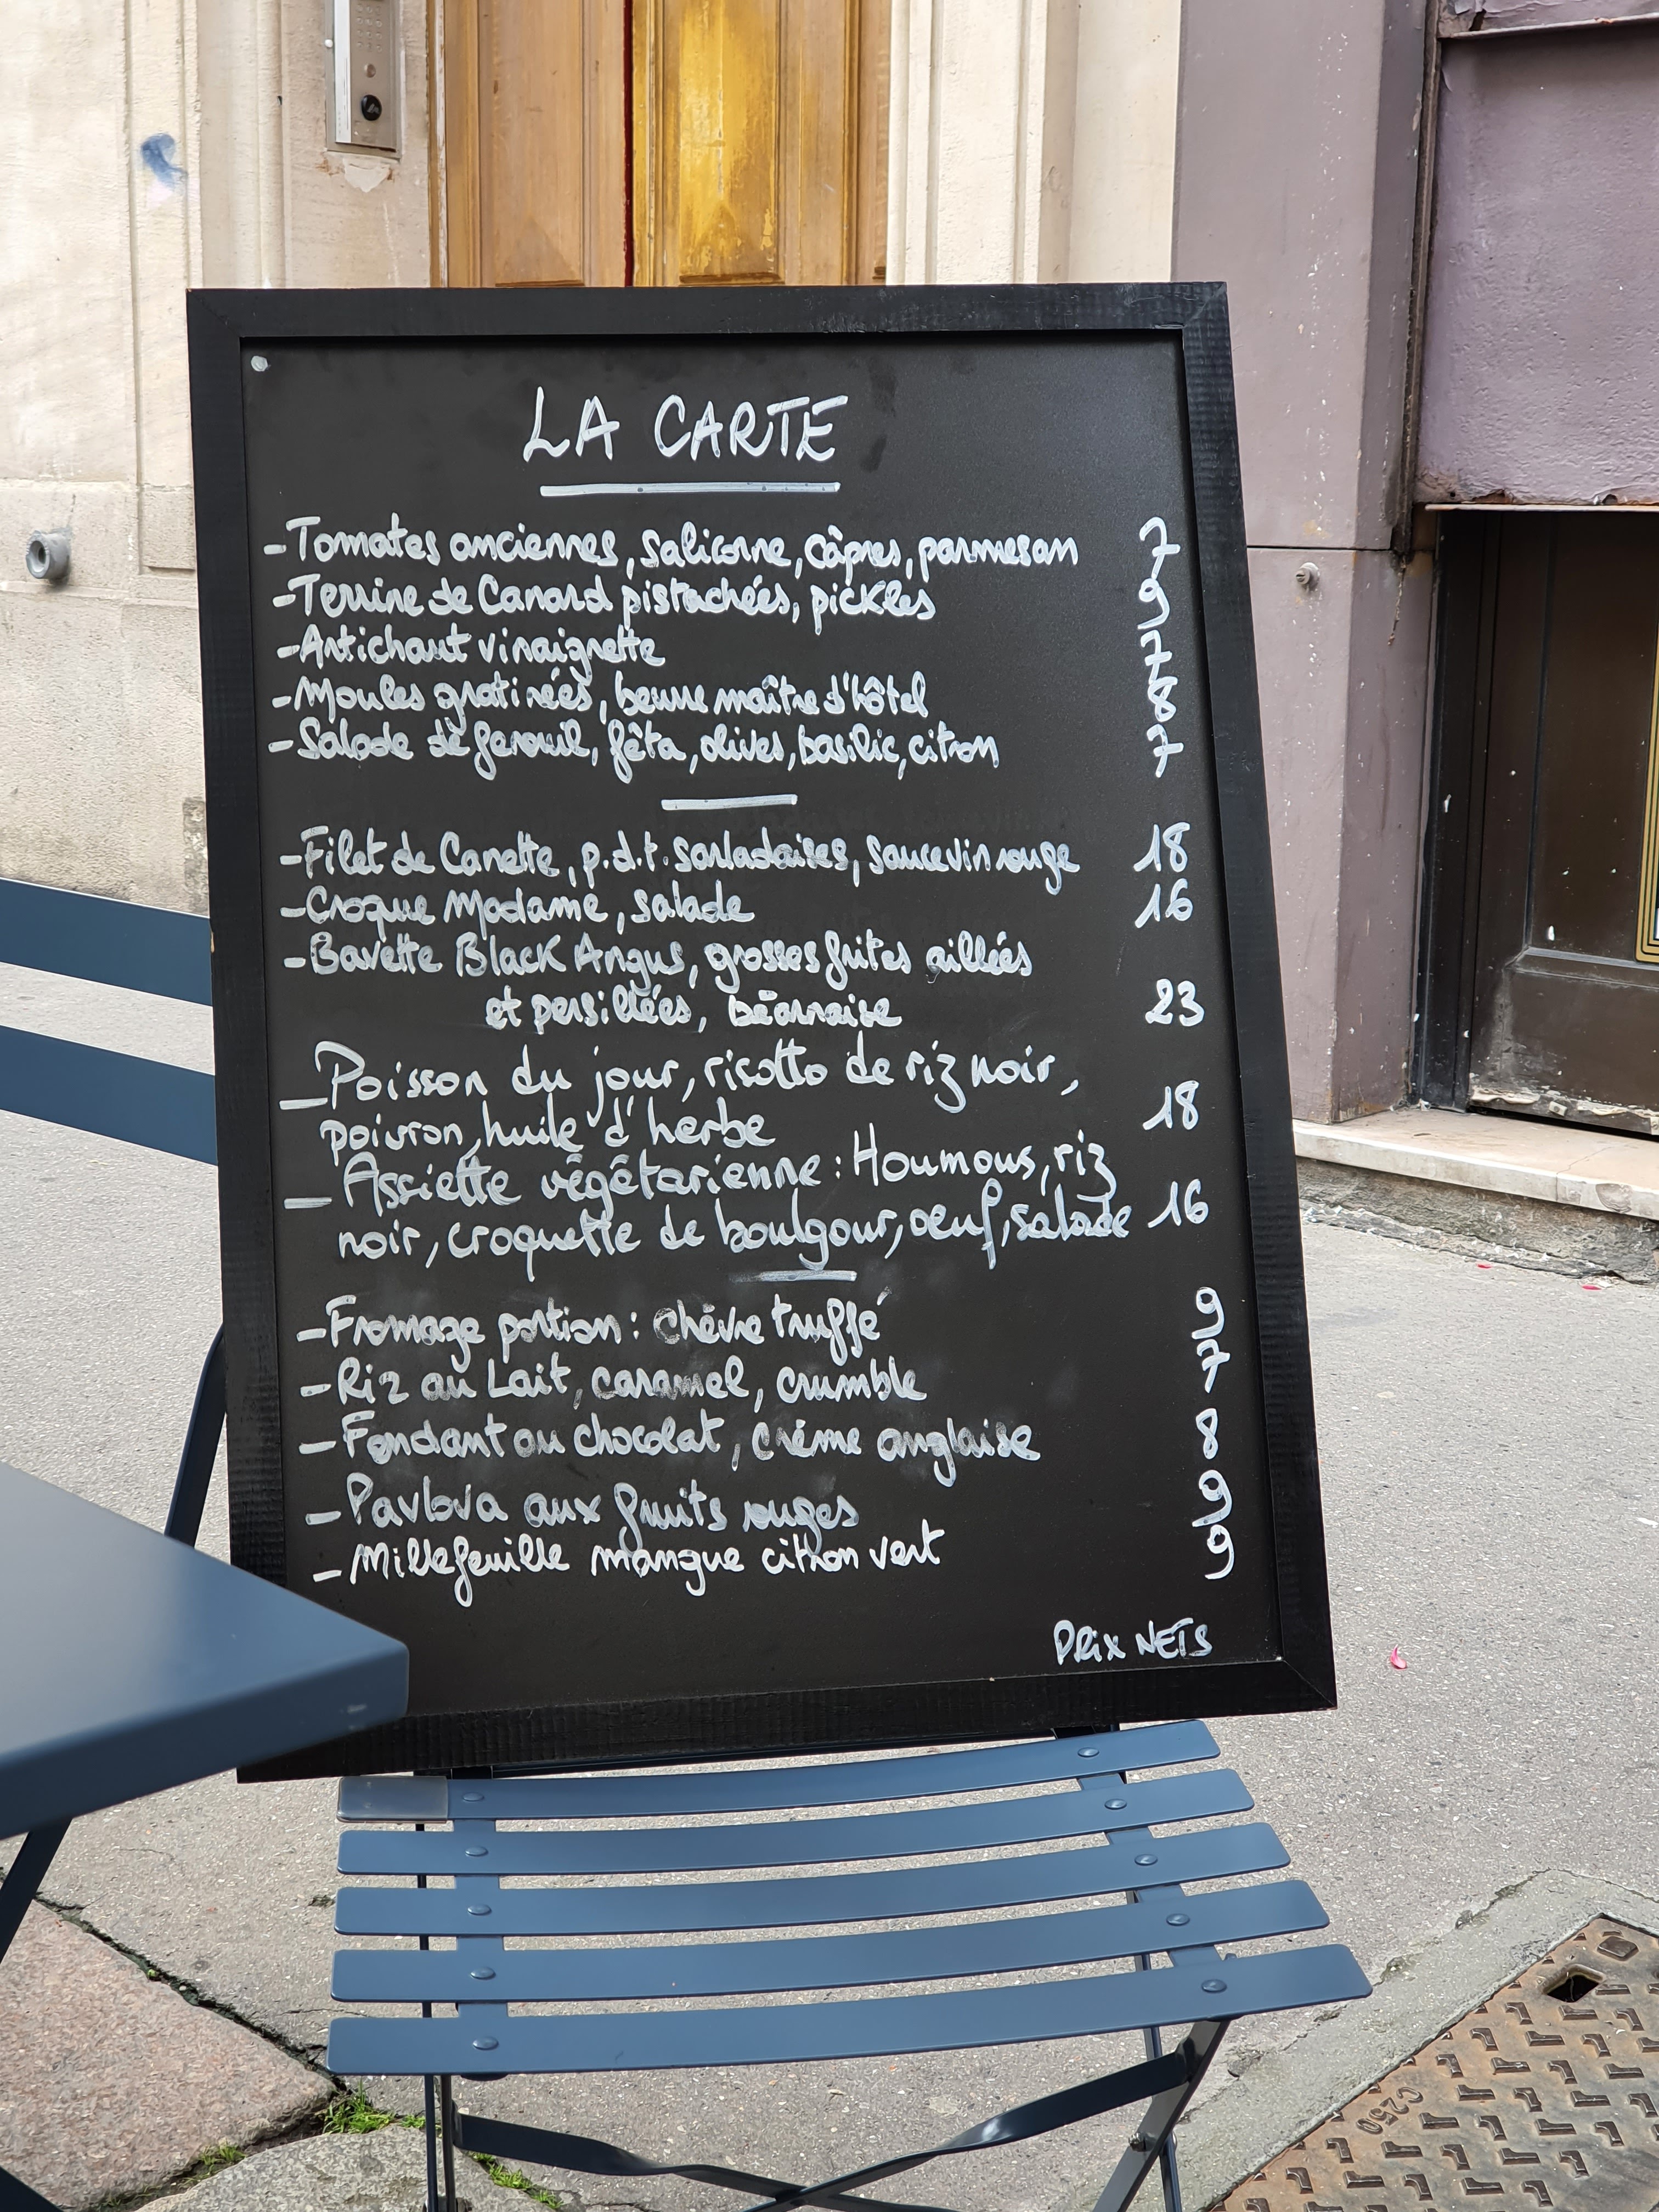 LA CARTE
-Tomates anciennes, salicorne, câpres, parmesan 7
-Terrine de Canard pistachées, pickles 9
-Artichaut vinaigrette 7
-Moules gratinées, beurre maître d'hôtel 8
-Salade de fenouil, fêta, olives, basilic, citron 7
-Filet de Canette, p.d.t. sarladaises, sauce vin rouge 18
-Croque Madame, salade 16
-Bavette Black Angus, grosses frites aillées
et persillées, béarnaise 23
-Poisson du jour, risotto de riz noir,
poivron, huile d'herbe 18
-Assiette végétarienne : Houmous, riz
noir, croquette de boulgour, oeuf, salade 16
-Fromage portion : chèvre truffé 9
-Riz au Lait, caramel, crumble 7
-Fondant au chocolat, crème anglaise 8
-Pavlova aux fruits rouges 9
-Millefeuille mangue citron vert 9
PRIX NETS
C250